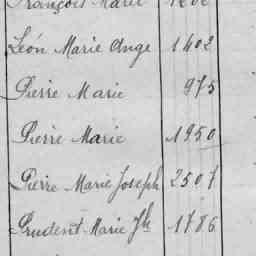 François Marie
Léon Marie Ange 1402
Pierre Marie 975
Pierre Marie 1950
Pierre Marie Joseph 2507
Prudent Marie Jh 1786